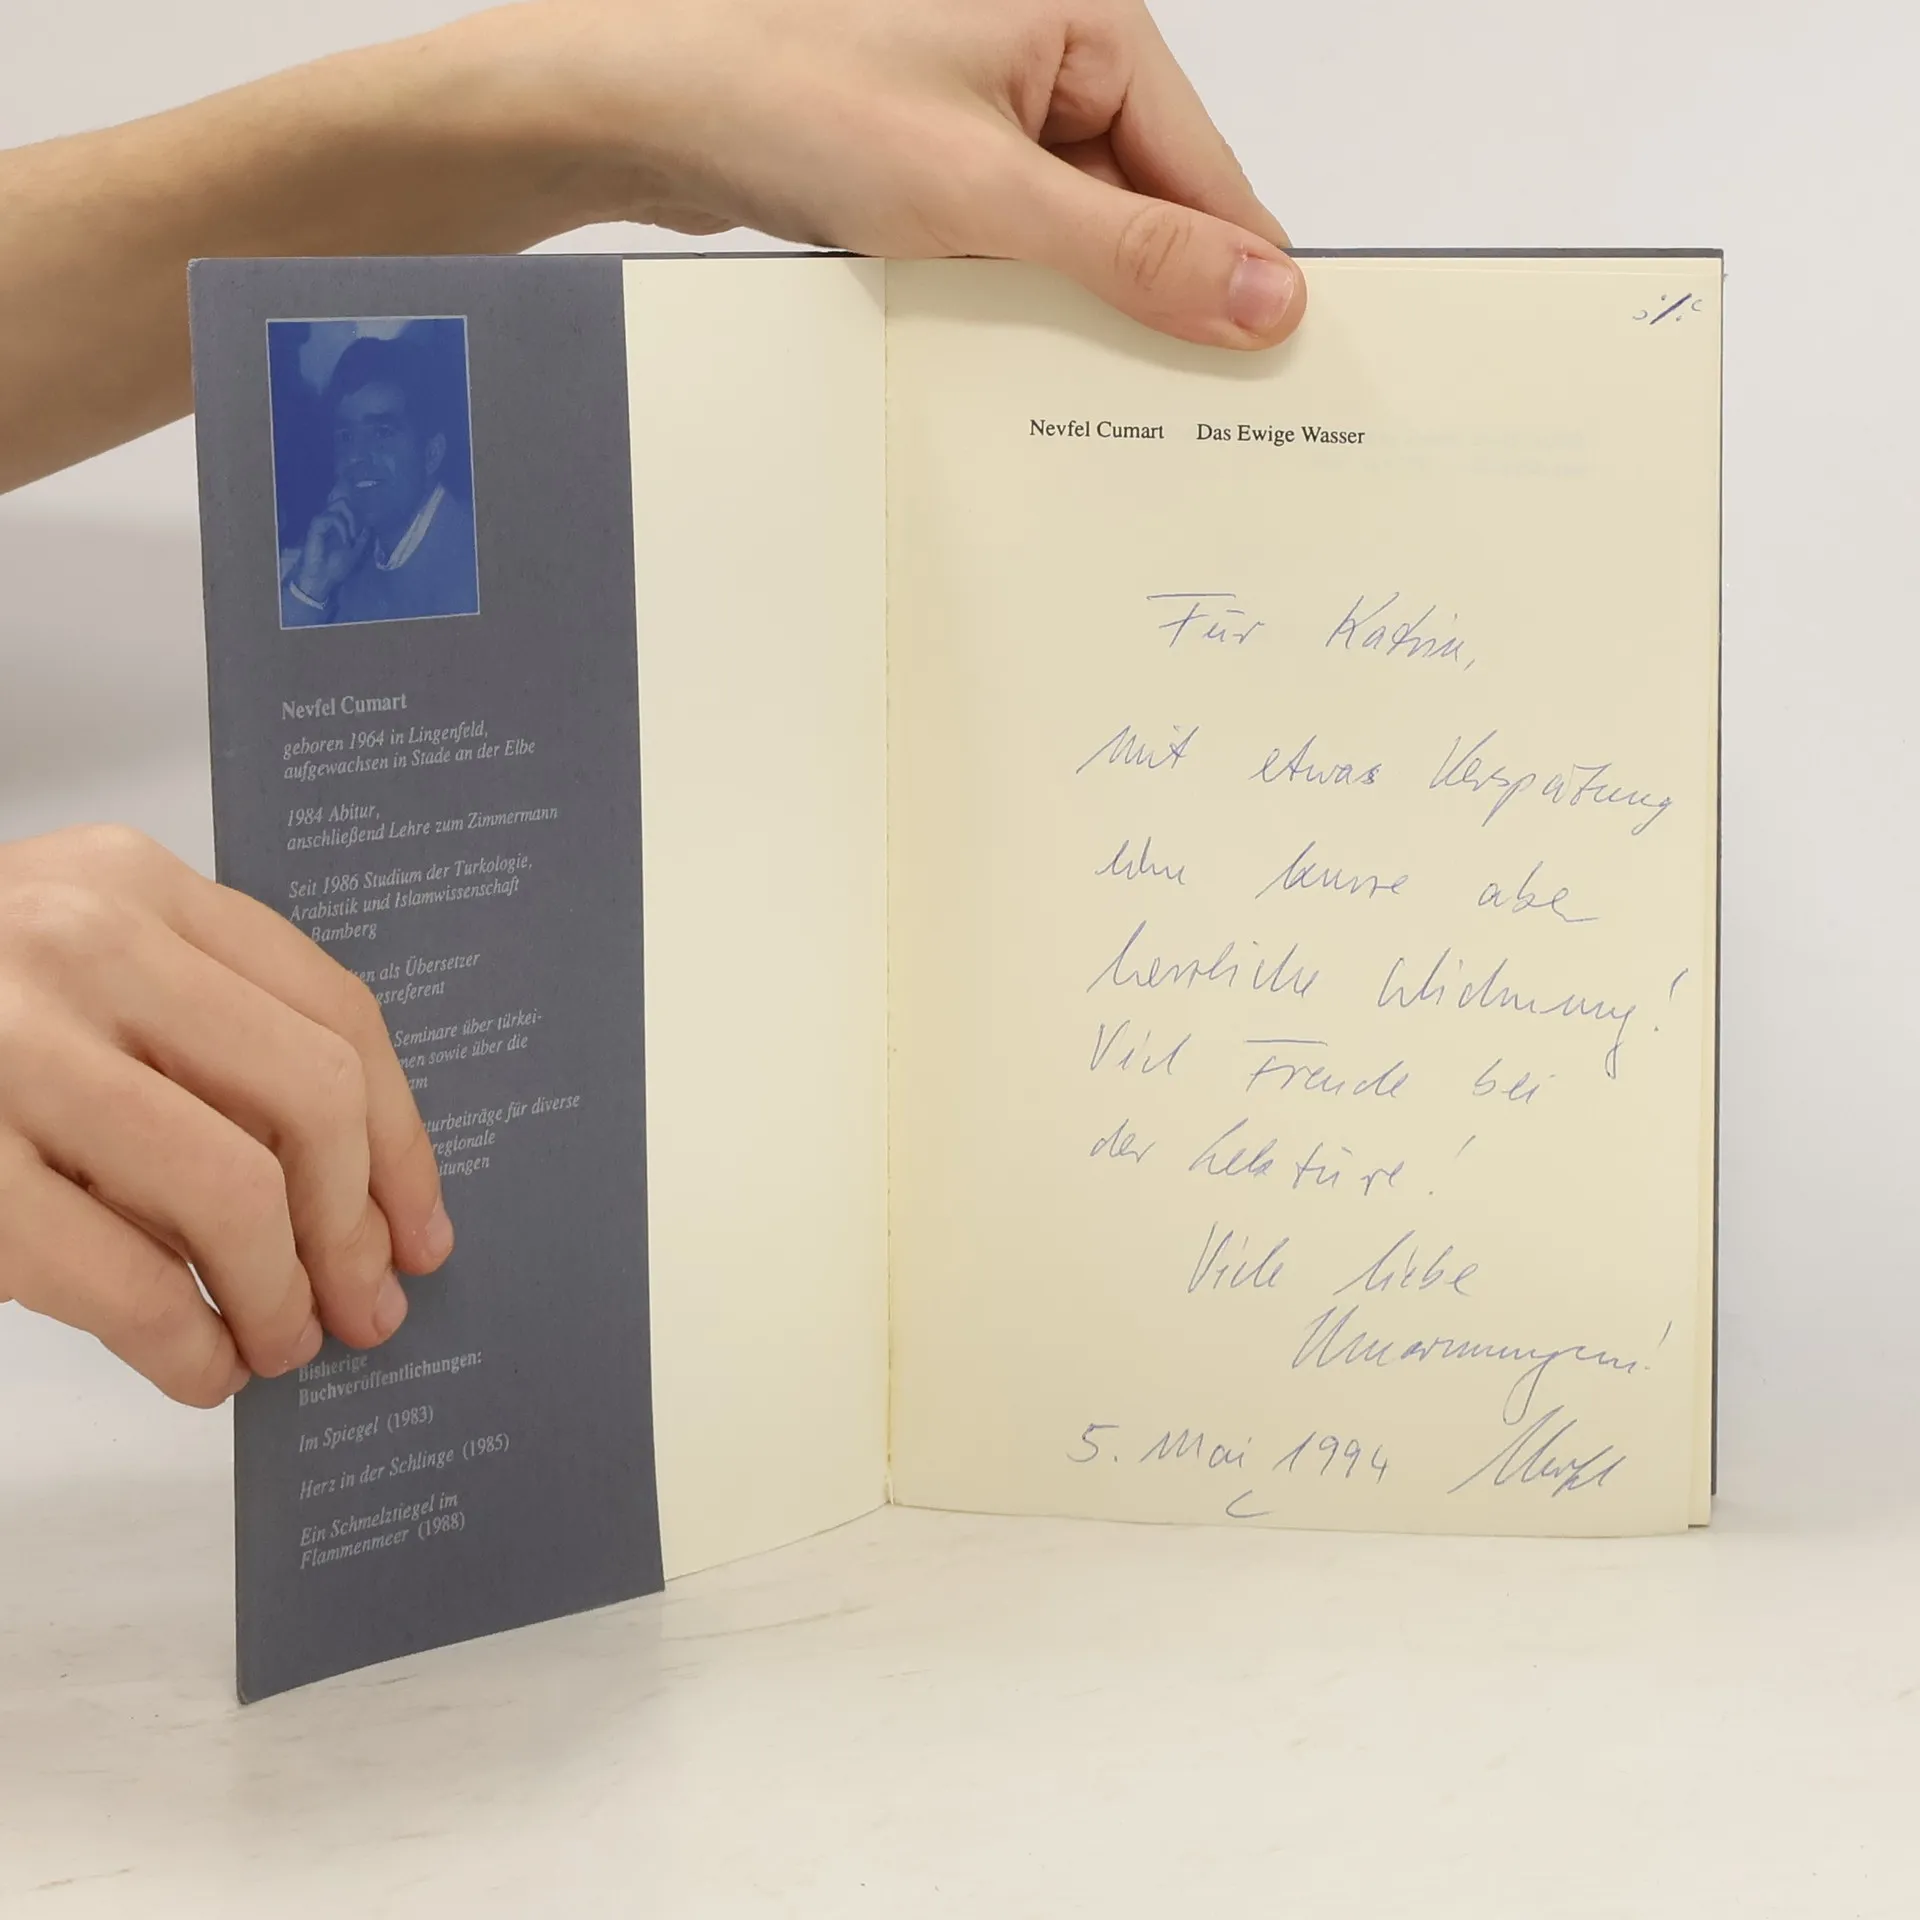 Nevfel Cumart
geboren 1964 in Lingenfeld,
aufgewachsen in Stade an der Elbe
1984 Abitur,
anschließend Lehre zum Zimmermann
Seit 1986 Studium der Turkologie,
Arabistik und Islamwissenschaft
Bamberg
als Übersetzer
Seminare über türkei-
sowie über die
für diverse
Bisherige
Buchveröffentlichungen:
Im Spiegel (1983)
Herz in der Schlinge (1985)
Ein Schmelztiegel im
Flammenmeer (1988)
Nevfel Cumart Das Ewige Wasser
Für Katrin,
mit etwas Verspätung
eine kurze aber
herzliche Widmung!
Viel Freude bei
der Lektüre!
Viele liebe
Umarmungen!
5. Mai 1994 Nevfel